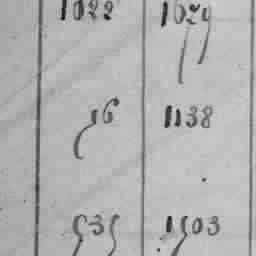 1022 1679
56 1138
535 1503